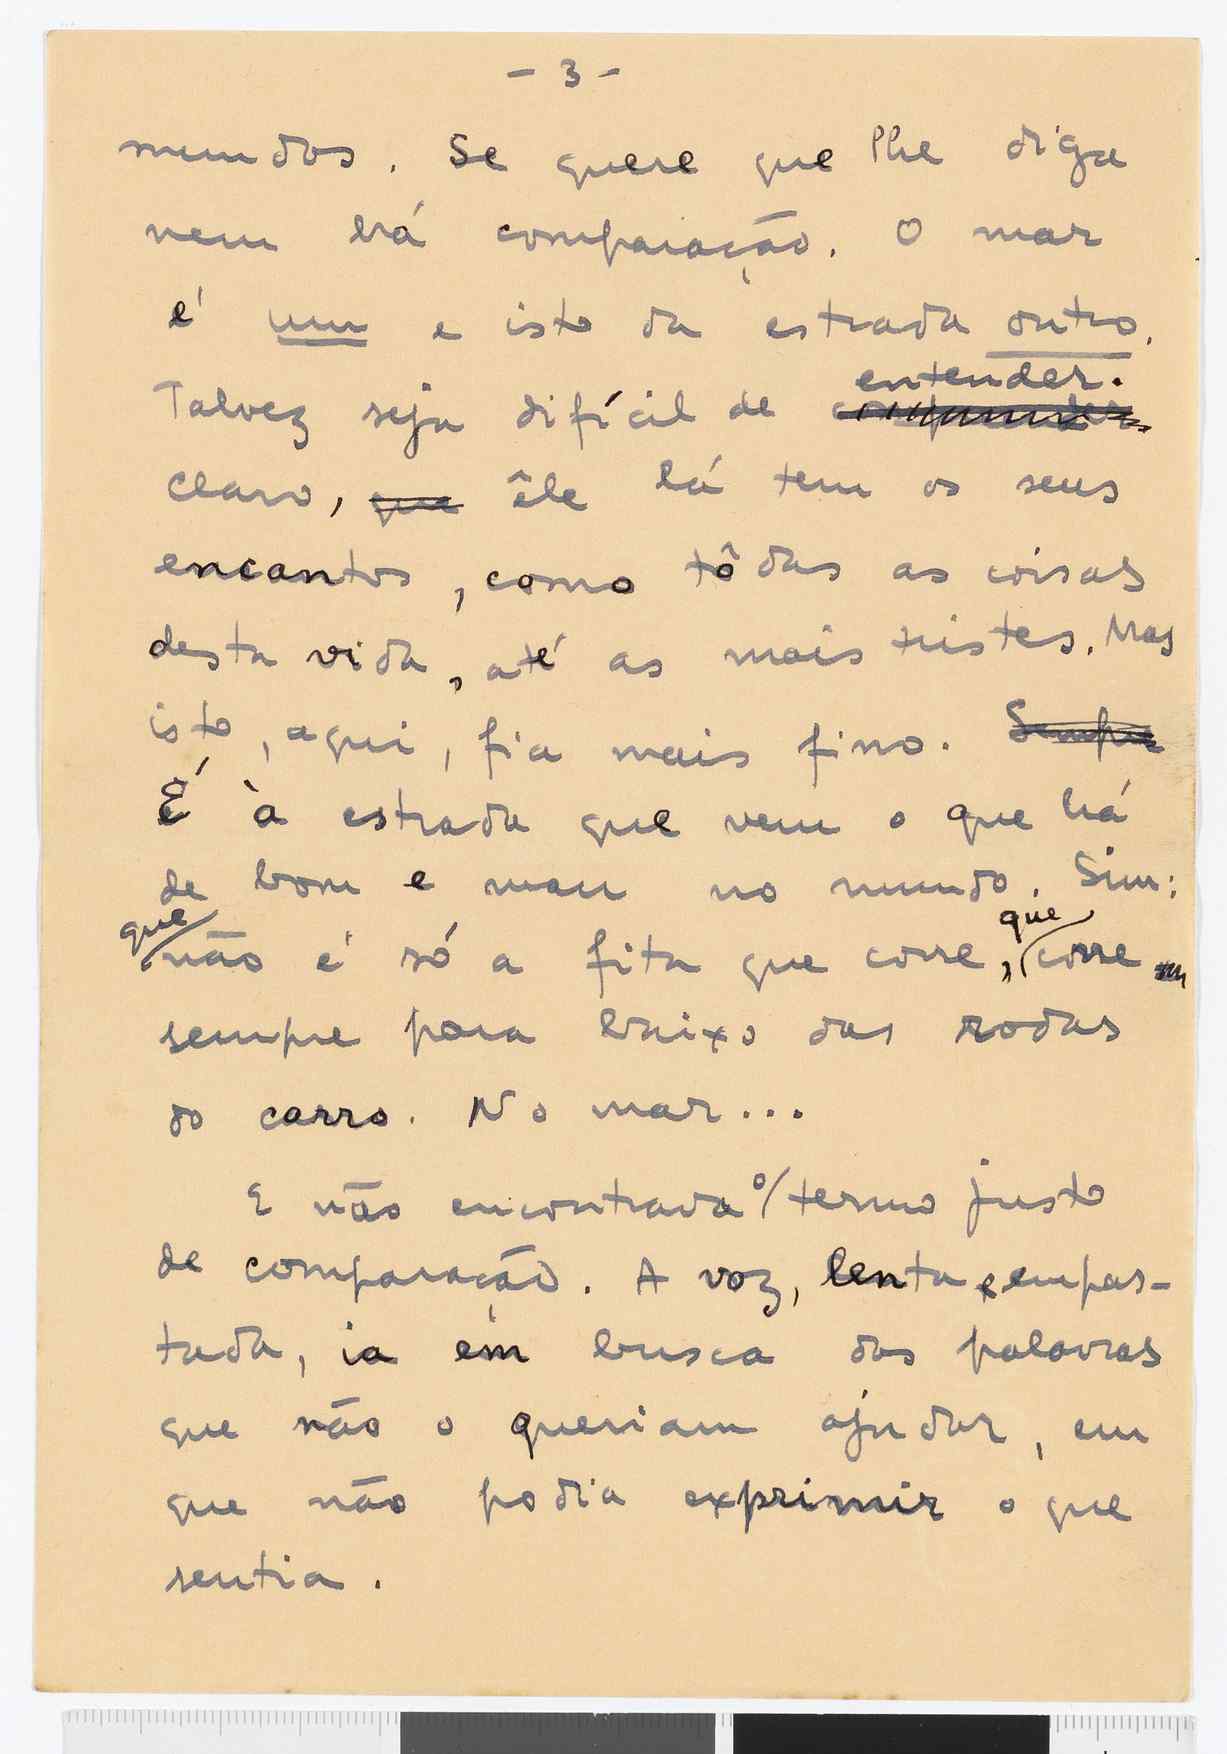 - 3 -
mundos. Se quere que lhe diga
nem há comparação. O mar
é um e isto da estrada outro.
Talvez seja difícil de entender.
claro, que êle lá tem os seus
encantos, como tôdas as coisas
desta vida, até as mais tristes. Mas
isto, aqui, fia mais fino. Sempre
É à estrada que vem o que há
de bom e mau no mundo. Sim:
que não é só a fita que corre, que corre
sempre para baixo das rodas
do carro. No mar...
E não encontrava o termo justo
de comparação. A voz, lenta e empas-
tada, ia em busca das palavras
que não o queriam ajudar, em
que não podia exprimir o que
sentia.